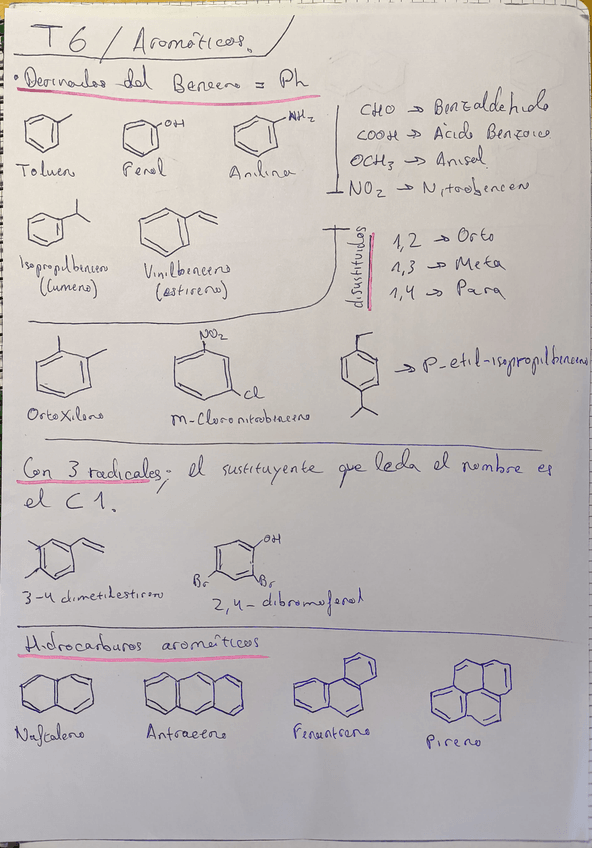 T6 / Aromáticos.
· Derivados del Benceno = Ph
OH
NH2
Tolueno Fenol Anilina
CHO → Benzaldehido
COOH → Acido Benzoico
OCH3 → Anisol
NO2 → Nitrobenceno
Isopropilbenceno
(Cumeno)
Vinilbenceno
(estireno)
disustituidos
1,2 → Orto
1,3 → Meta
1,4 → Para
NO2
Cl
OrtoXileno
m-Cloronitrobenceno
→ P-etil-isopropilbenceno
Con 3 radicales: el sustituyente que le da el nombre es
el C 1.
OH
Br
Br
3-4 dimetilestireno
2,4-dibromofenol
Hidrocarburos aromáticos
Naftaleno Antraceno Fenantreno Pireno